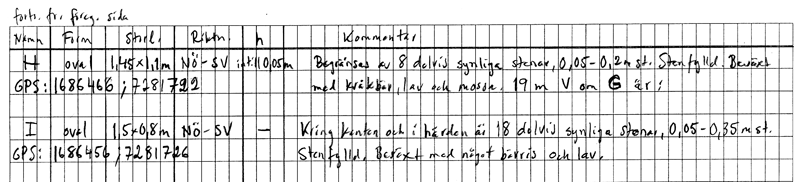 forts. fr. föreg. sida
Namn Form Storl. Riktn. h Kommentar
H oval 1,45x1,1m NÖ-SV intill 0,05m Begränsas av 8 delvis synliga stenar, 0,05-0,2m st. Stenfylld. Beväxt
GPS: 1686466 ; 7281722 med kråkbär, lav och mossa. 19 m V om G är:
I oval 1,5x0,8m NÖ-SV — Kring kanten och i härden är 18 delvis synliga stenar, 0,05-0,35m st.
GPS: 1686456 ; 7281726 Stenfylld. Beväxt med något bärris och lav.